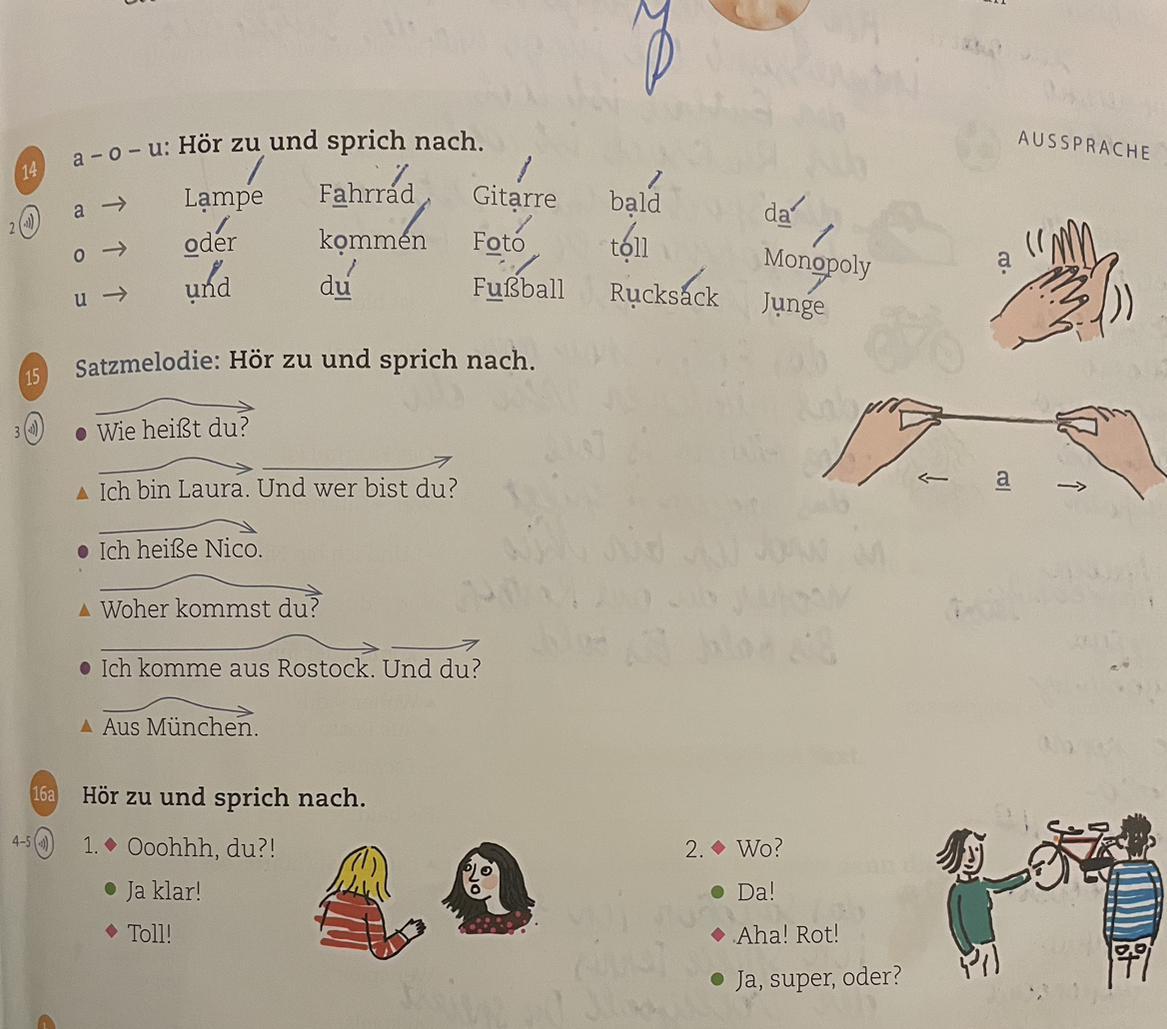 AUSSPRACHE
14 a – o – u: Hör zu und sprich nach.
2 a → Lampe Fahrrad Gitarre bald da
o → oder kommen Foto toll Monopoly
u → und du Fußball Rucksack Junge
ạ
← a →
15 Satzmelodie: Hör zu und sprich nach.
3 Wie heißt du?
Ich bin Laura. Und wer bist du?
Ich heiße Nico.
Woher kommst du?
Ich komme aus Rostock. Und du?
Aus München.
16a Hör zu und sprich nach.
4–5 1. Ooohhh, du?!
Ja klar!
Toll!
2. Wo?
Da!
Aha! Rot!
Ja, super, oder?